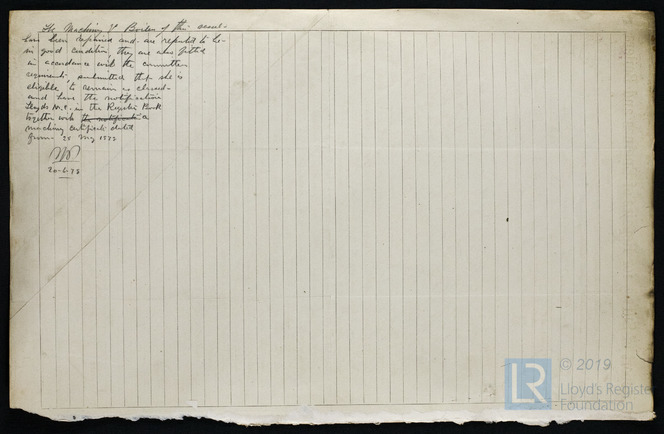 The Machinery & Boilers of this vessel
have been repaired and are reported to be
in good condition, they are also fitted
in accordance with the committees
requirements, submitted that she is
eligible to remain as classed
and have the notification
Lloyds M.C. in the Register Book
together with the notification a
machinery certificate dated
from 25 May 1873
20-6-73
© 2019
LR
Lloyd's Register
Foundation